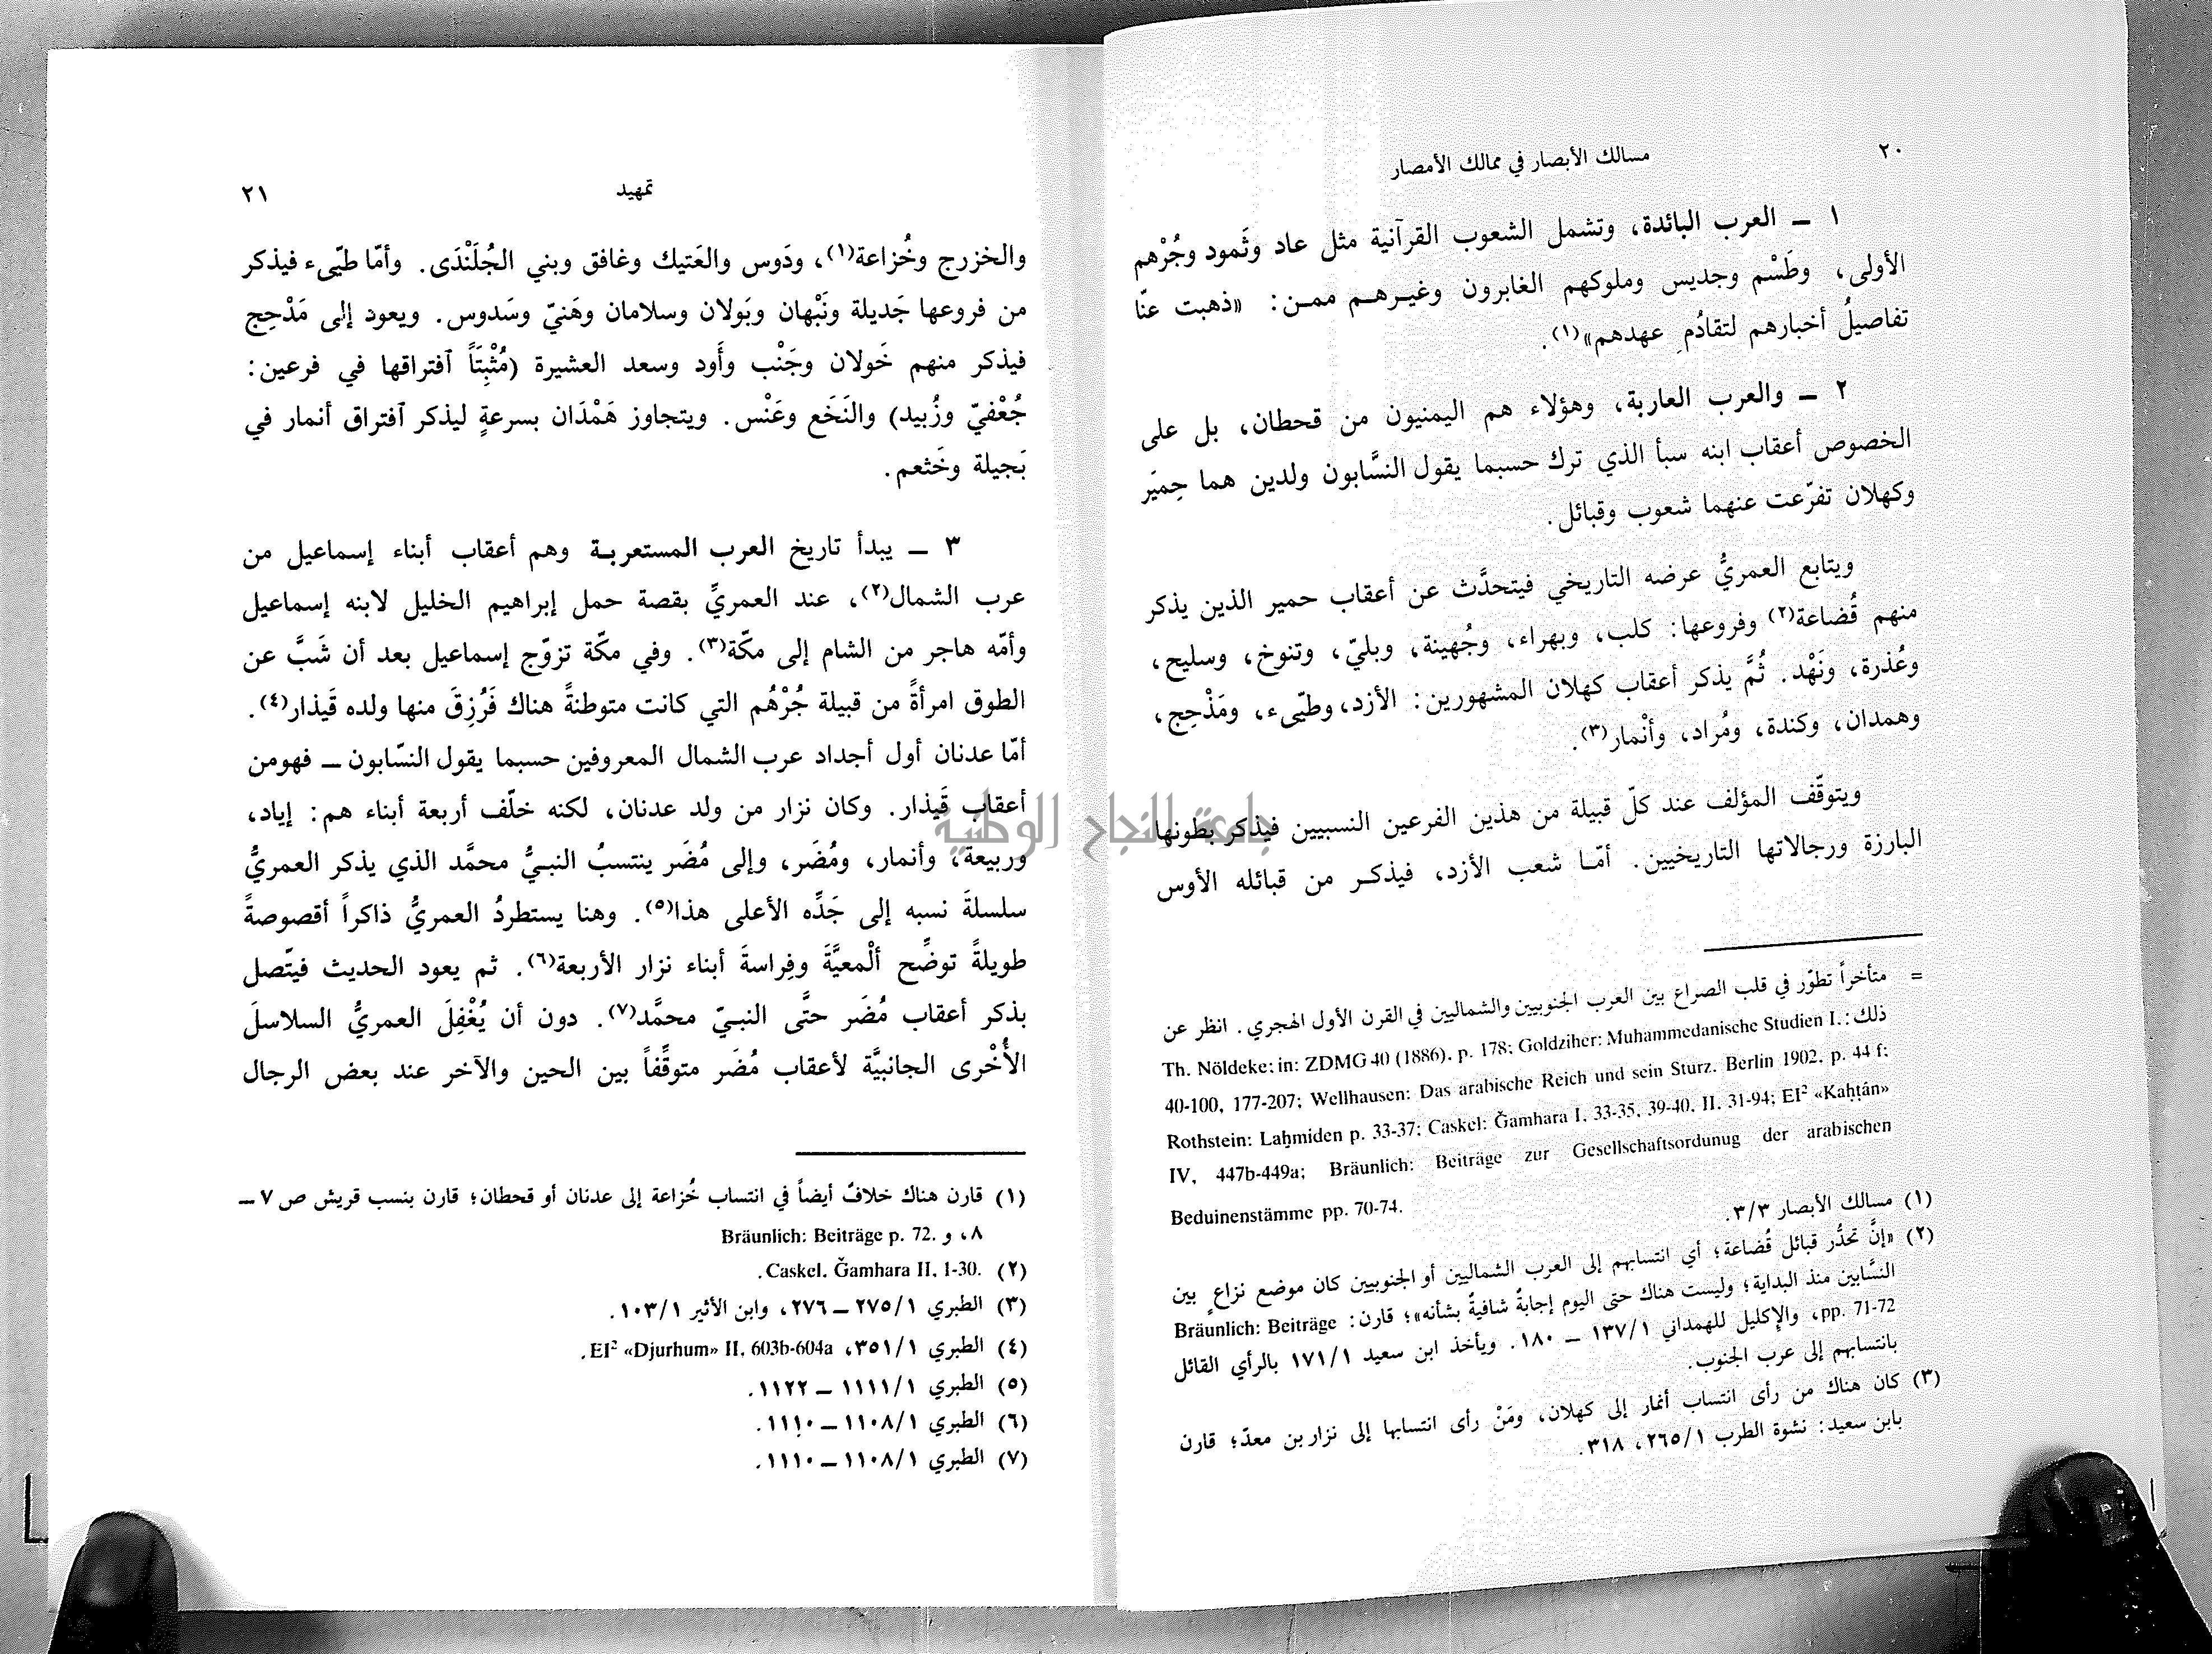 ٢٠
مسالك الأبصار في ممالك الأمصار
١ ــ العرب البائدة، وتشمل الشعوب القرآنية مثل عاد وثَمود وجُرْهم
الأولى، وطَسْم وجديس وملوكهم الغابرون وغيـرهـم ممـن: «ذهبت عنّا
تفاصيلُ أخبارهم لتقادُمِ عهدهم»(١).
٢ ــ والعرب العاربة، وهؤلاء هم اليمنيون من قحطان، بل على
الخصوص أعقاب ابنه سبأ الذي ترك حسبما يقول النسَّابون ولدين هما حِميَر
وكهلان تفرّعت عنهما شعوب وقبائل.
ويتابع العمريُّ عرضه التاريخي فيتحدَّث عن أعقاب حمير الذين يذكر
منهم قُضاعة(٢) وفروعها: كلب، وبهراء، وجُهينة، وبليّ، وتنوخ، وسليح،
وعُذرة، ونَهْد. ثُمَّ يذكر أعقاب كهلان المشهورين: الأزد، وطيّىء، ومَذْحِج،
وهمدان، وكندة، ومُراد، وأنْمار(٣).
ويتوقّف المؤلف عند كلّ قبيلة من هذين الفرعين النسبيين فيذكر بطونها
البارزة ورجالاتها التاريخيين. أمّـا شعب الأزد، فيذكـر من قبائله الأوس
= متأخراً تطوّر في قلب الصراع بين العرب الجنوبيين والشماليين في القرن الأول الهجري. انظر عن
ذلك:
Th. Nöldeke; in: ZDMG 40 (1886). p. 178; Goldziher: Muhammedanische Studien I.
40-100, 177-207; Wellhausen: Das arabische Reich und sein Sturz. Berlin 1902. p. 44 f;
Rothstein: Laḫmiden p. 33-37; Caskel: Ǧamhara I. 33-35, 39-40, II. 31-94; EI² «Kaḥṭân»
IV, 447b-449a; Bräunlich: Beiträge zur Gesellschaftsordunug der arabischen
Beduinenstämme pp. 70-74.
(١) مسالك الأبصار ٣/٣.
(٢) «إنَّ تحدُّر قبائل قُضاعة؛ أي انتسابهم إلى العرب الشماليين أو الجنوبيين كان موضع نزاعٍ بين
النسَّابين منذ البداية؛ وليست هناك حتى اليوم إجابةٌ شافيةٌ بشأنه»؛ قارن: Bräunlich: Beiträge
pp. 71-72، والإكليل للهمداني ١٣٧/١ ــ ١٨٠. ويأخذ ابن سعيد ١٧١/١ بالرأي القائل
بانتسابهم إلى عرب الجنوب.
(٣) كان هناك من رأى انتساب أنمار إلى كهلان، ومَنْ رأى انتسابها إلى نزار بن معدّ؛ قارن
بابن سعيد: نشوة الطرب ٢٦٥/١، ٣١٨.
تمهيد
٢١
والخزرج وخُزاعة(١)، ودَوس والعَتيك وغافق وبني الجُلَنْدَى. وأمّا طيّىء فيذكر
من فروعها جَديلة ونَبْهان وبَولان وسلامان وهَنيّ وسَدوس. ويعود إلى مَذْحِج
فيذكر منهم خَولان وجَنْب وأَود وسعد العشيرة (مُثْبِتَاً ٱفتراقها في فرعين:
جُعْفيّ وزُبيد) والنَخَع وعَنْس. ويتجاوز هَمْدَان بسرعةٍ ليذكر ٱفتراق أنمار في
بَجيلة وخَثعم.
٣ ــ يبدأ تاريخ العرب المستعربـة وهم أعقاب أبناء إسماعيل من
عرب الشمال(٢)، عند العمريِّ بقصة حمل إبراهيم الخليل لابنه إسماعيل
وأمّه هاجر من الشام إلى مكّة(٣). وفي مكّة تزوّج إسماعيل بعد أن شَبَّ عن
الطوق امرأةً من قبيلة جُرْهُم التي كانت متوطنةً هناك فَرُزِقَ منها ولده قَيذار(٤).
أمّا عدنان أول أجداد عرب الشمال المعروفين حسبما يقول النسّابون ــ فهومن
أعقاب قَيذار. وكان نزار من ولد عدنان، لكنه خلّف أربعة أبناء هم: إياد،
وربيعة، وأنمار، ومُضَر، وإلى مُضَر ينتسبُ النبـيُّ محمَّد الذي يذكر العمريُّ
سلسلةَ نسبه إلى جَدِّه الأعلى هذا(٥). وهنا يستطردُ العمريُّ ذاكراً أقصوصةً
طويلةً توضِّح ألْمعيَّةَ وفِراسةَ أبناء نزار الأربعة(٦). ثم يعود الحديث فيتّصل
بذكر أعقاب مُضَر حتَّى النبـيّ محمَّد(٧). دون أن يُغْفِلَ العمريُّ السلاسلَ
الأُخْرى الجانبيَّة لأعقاب مُضَر متوقِّفاً بين الحين والآخر عند بعض الرجال
(١) قارن هناك خلافٌ أيضاً في انتساب خُزاعة إلى عدنان أو قحطان؛ قارن بنسب قريش ص ٧ ــ
٨، و Bräunlich: Beiträge p. 72.
(٢) Caskel. Ǧamhara II. 1-30.
(٣) الطبري ٢٧٥/١ ــ ٢٧٦، وابن الأثير ١٠٣/١.
(٤) الطبري ٣٥١/١، EI² «Djurhum» II. 603b-604a.
(٥) الطبري ١١١١/١ ــ ١١٢٢.
(٦) الطبري ١١٠٨/١ ــ ١١١٠.
(٧) الطبري ١١٠٨/١ ــ ١١١٠.
جامعة النجاح الوطنية